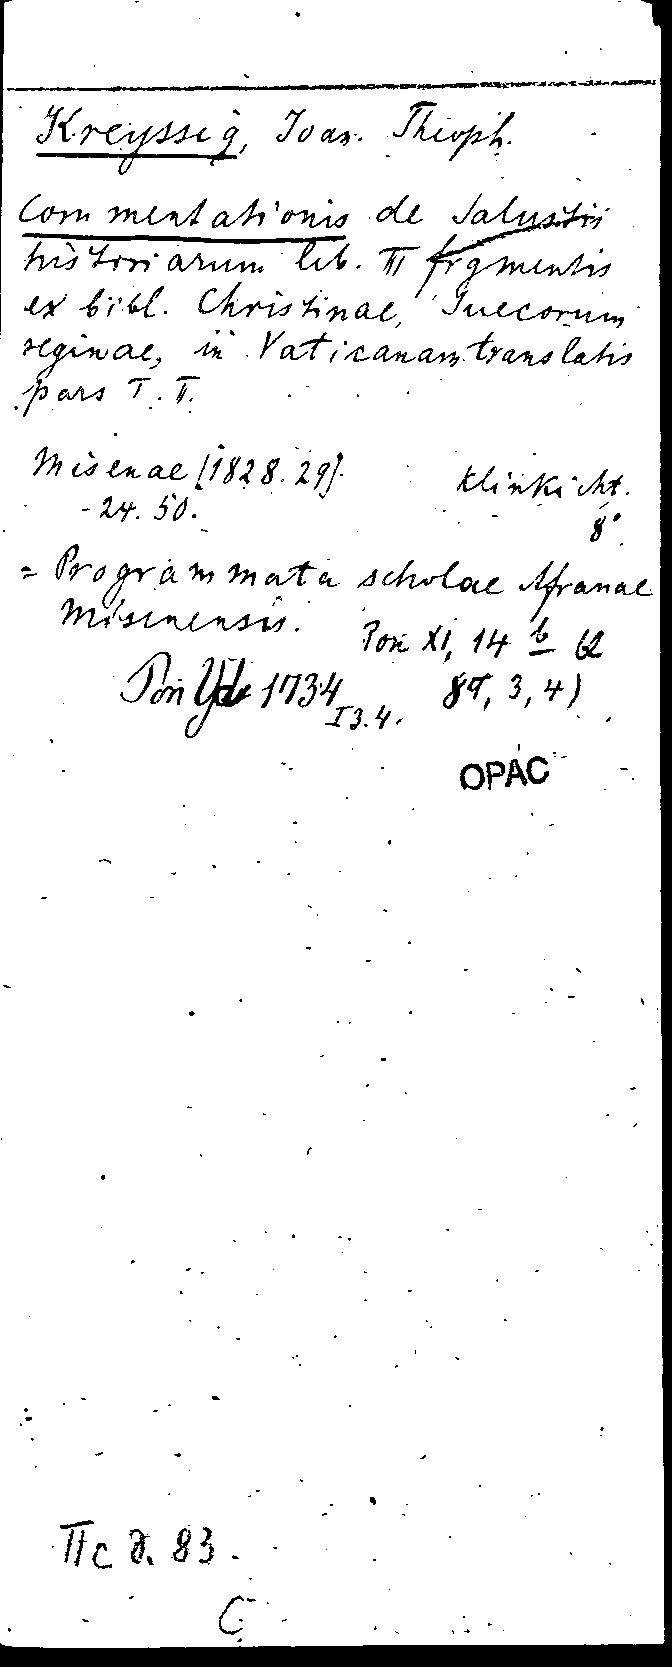 Kreyssig, Ioan. Theoph.
Commentationis de Salustii
historiarum lib. III frgmentis
ex bibl. Christinae, Suecorum
reginae, in Vaticanam translatis
pars I. II.
Misenae [1828. 29].
Klinkicht.
- 24. 50.
8°
= Programmata scholae Afranae
Misenensis.
Pon XI, 14 b
Pon Yd 1734
I 3. 4.
8°, 3, 4)
OPAC
II c 83.
C